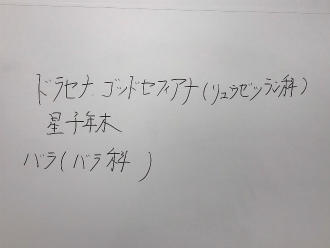 ドラセナ ゴッドセフィアナ(リュウゼツラン科)
星子年木
バラ(バラ科)